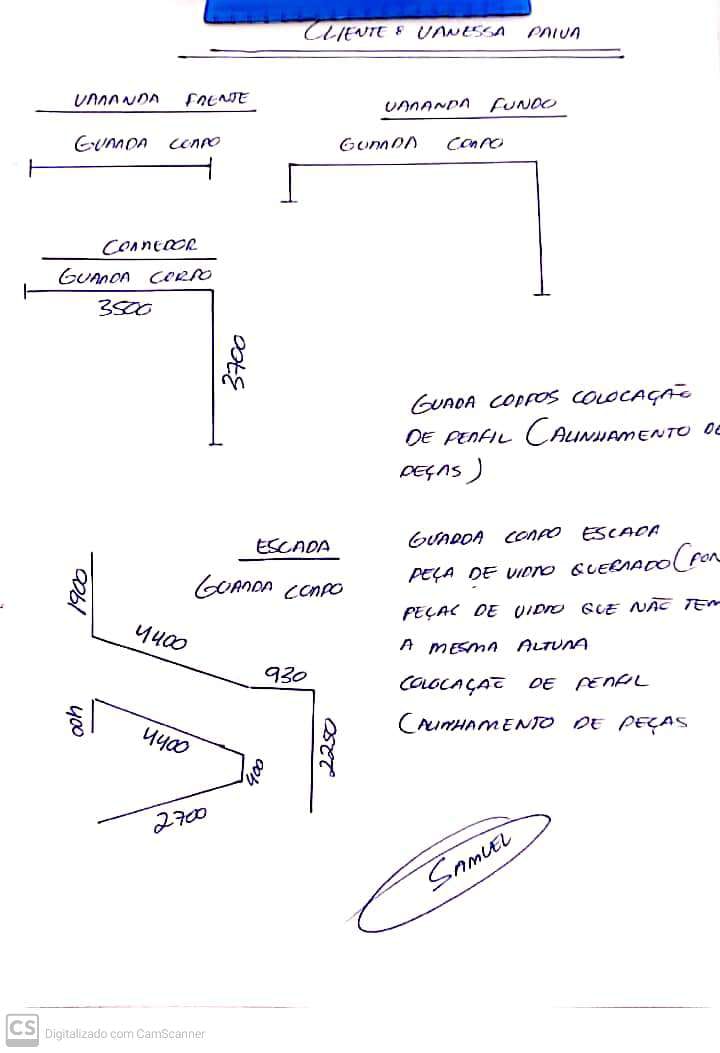 CLIENTE: VANESSA PAIVA
VARANDA FRENTE
GUARDA CORPO
VARANDA FUNDO
GUARDA CORPO
CORREDOR
GUARDA CORPO
3500
3700
GUADA CORPOS COLOCAÇÃO
DE PERFIL (ALINHAMENTO DE
PEÇAS)
ESCADA
GUARDA CORPO
1900
4400
930
2250
400
4400
400
2700
GUARDA CORPO ESCADA
PEÇA DE VIDRO QUEBRADO (POR
PEÇAS DE VIDRO QUE NÃO TEM
A MESMA ALTURA
COLOCAÇÃE DE PERFIL
(ALINHAMENTO DE PEÇAS
SAMUEL
CS Digitalizado com CamScanner